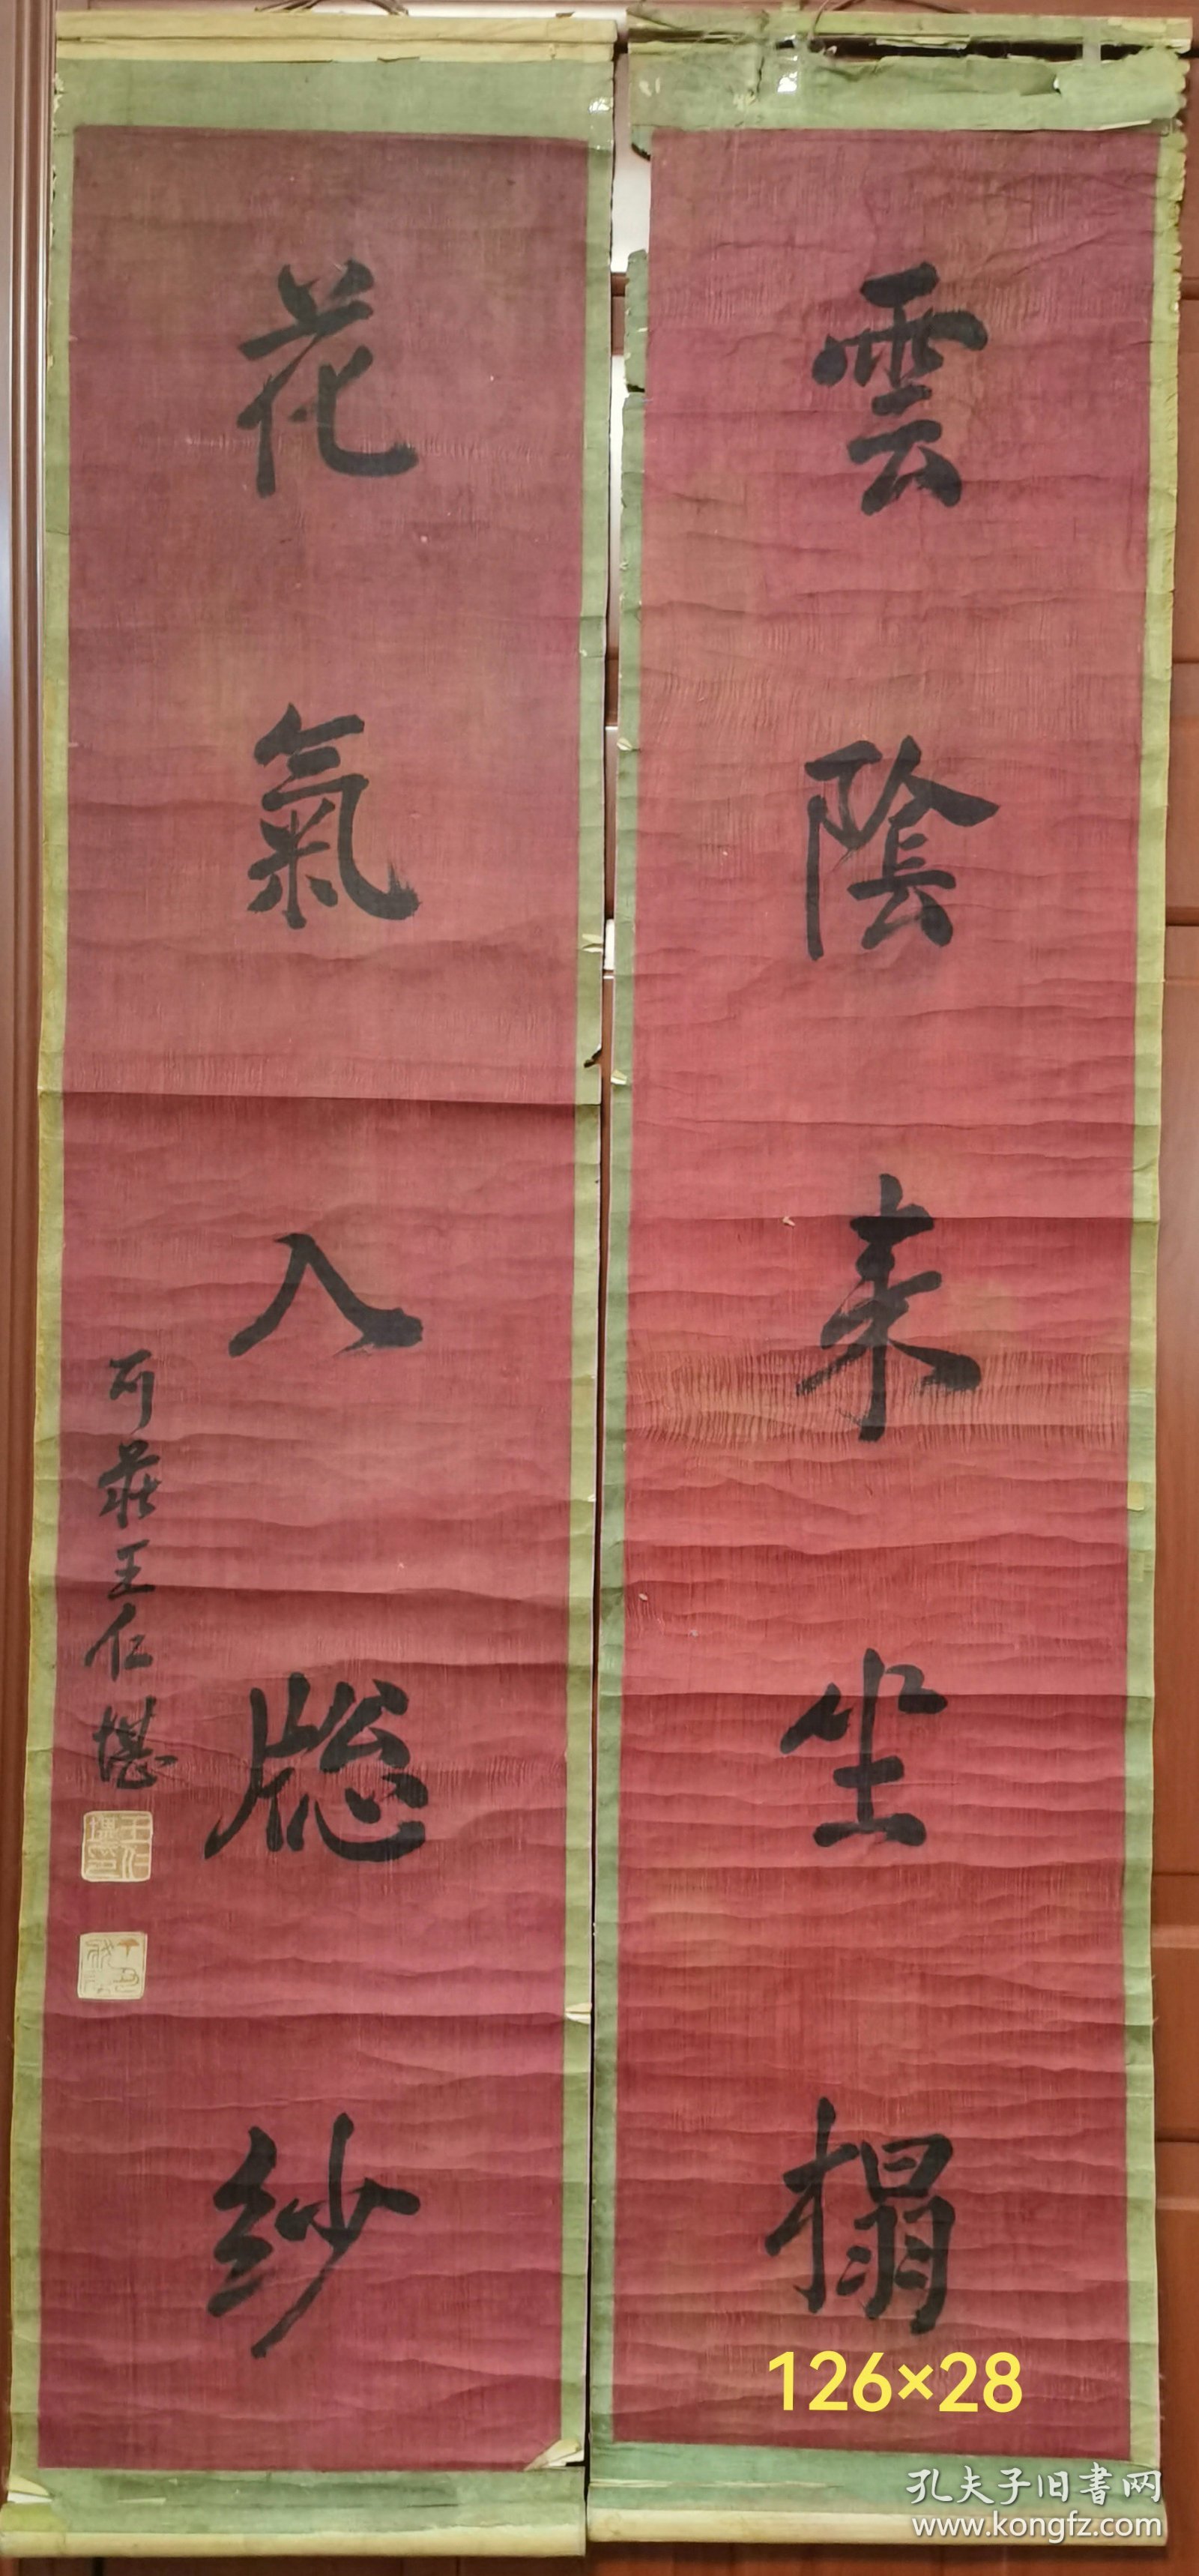 雲陰來坐榻
花氣入牕紗
可莊王仁堪
王仁堪印
126×28
孔夫子旧書网
www.kongfz.com